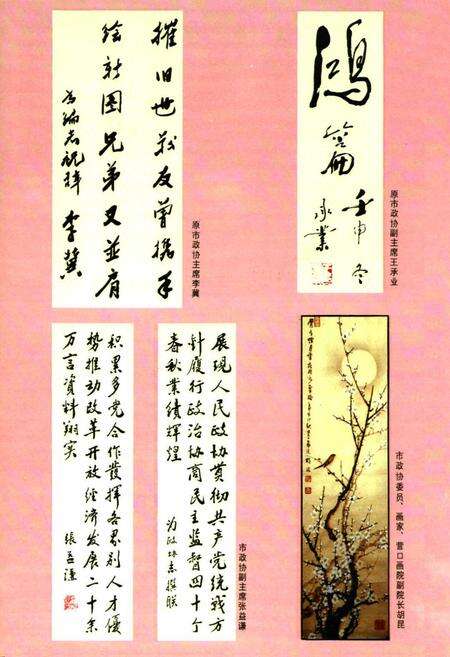 摧旧世战友曾携手
绘新图兄弟又并肩
为编志祝捷
李冀
原市政协主席李冀
鸿篇
壬申冬
承业
原市政协副主席王承业
展现人民政协贯彻共产党统战方
针履行政治协商民主监督四十个
春秋业绩辉煌
为政协志撰联
积累多党合作发挥各界别人才优
势推动改革开放经济发展二十余
万言资料翔实
张益谦
市政协副主席张益谦
市政协委员、画家、营口画院副院长胡昆